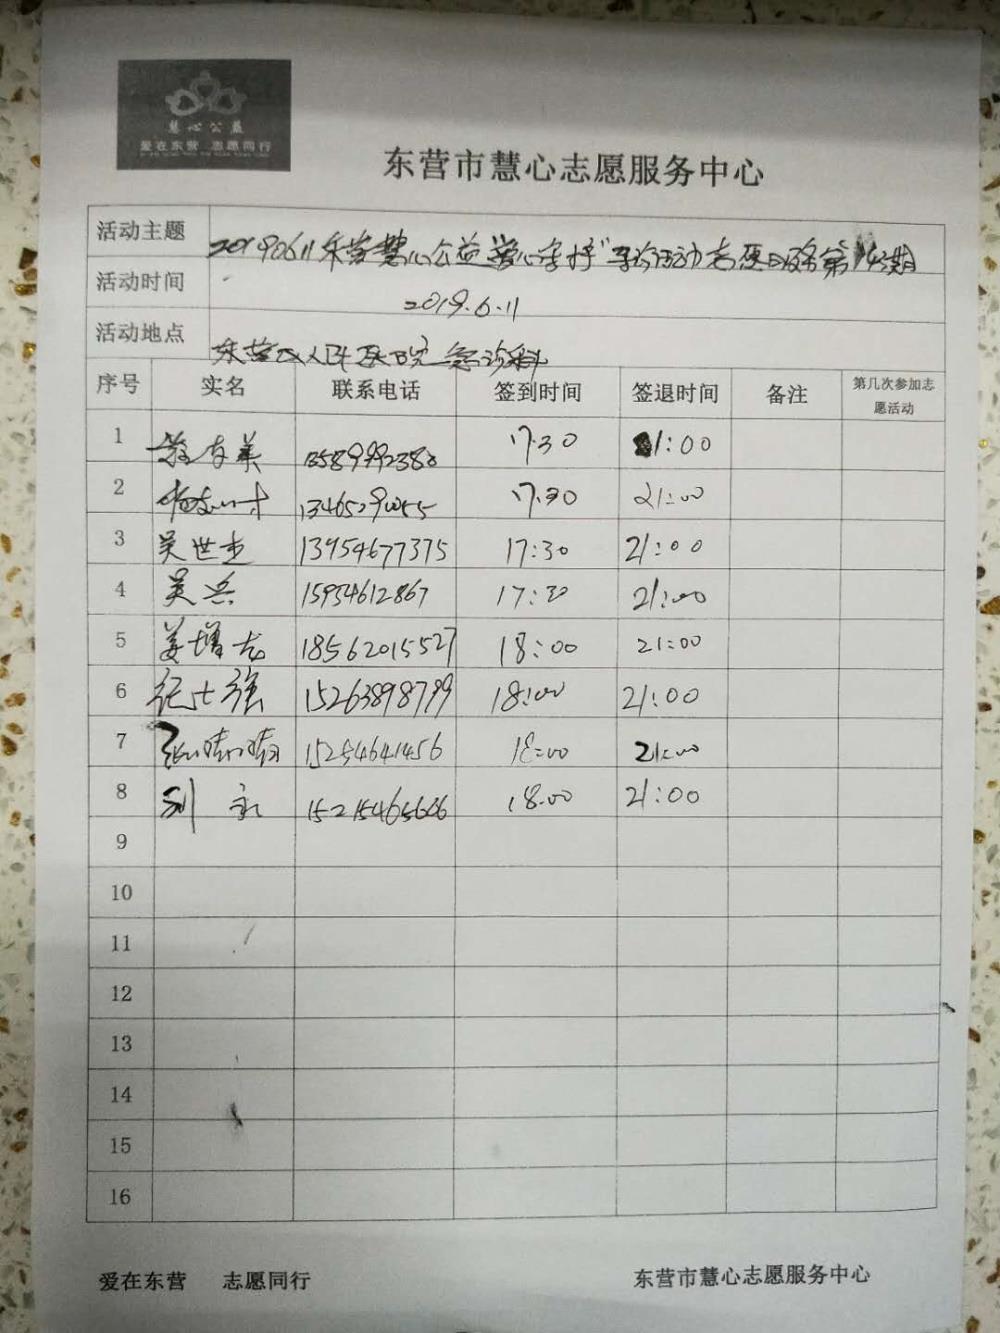 慧心公益
爱在东营 志愿同行
东营市慧心志愿服务中心
活动主题 20190611东营慧心公益爱心守护"导诊活动志愿服务第 期
活动时间 2019.6.11
活动地点 东营市人民医院急诊科
序号 实名 联系电话 签到时间 签退时间 备注 第几次参加志
愿活动
1 美 13589992388 17:30 21:00
2 17:30 21:00
3 吴世杰 13954677375 17:30 21:00
4 吴兵 15954612867 17:30 21:00
5 姜增志 18562015527 18:00 21:00
6 纪士强 15263898799 18:00 21:00
7 张晴晴 15254641456 18:00 21:00
8 刘永 15215465606 18:00 21:00
9
10
11
12
13
14
15
16
爱在东营 志愿同行 东营市慧心志愿服务中心